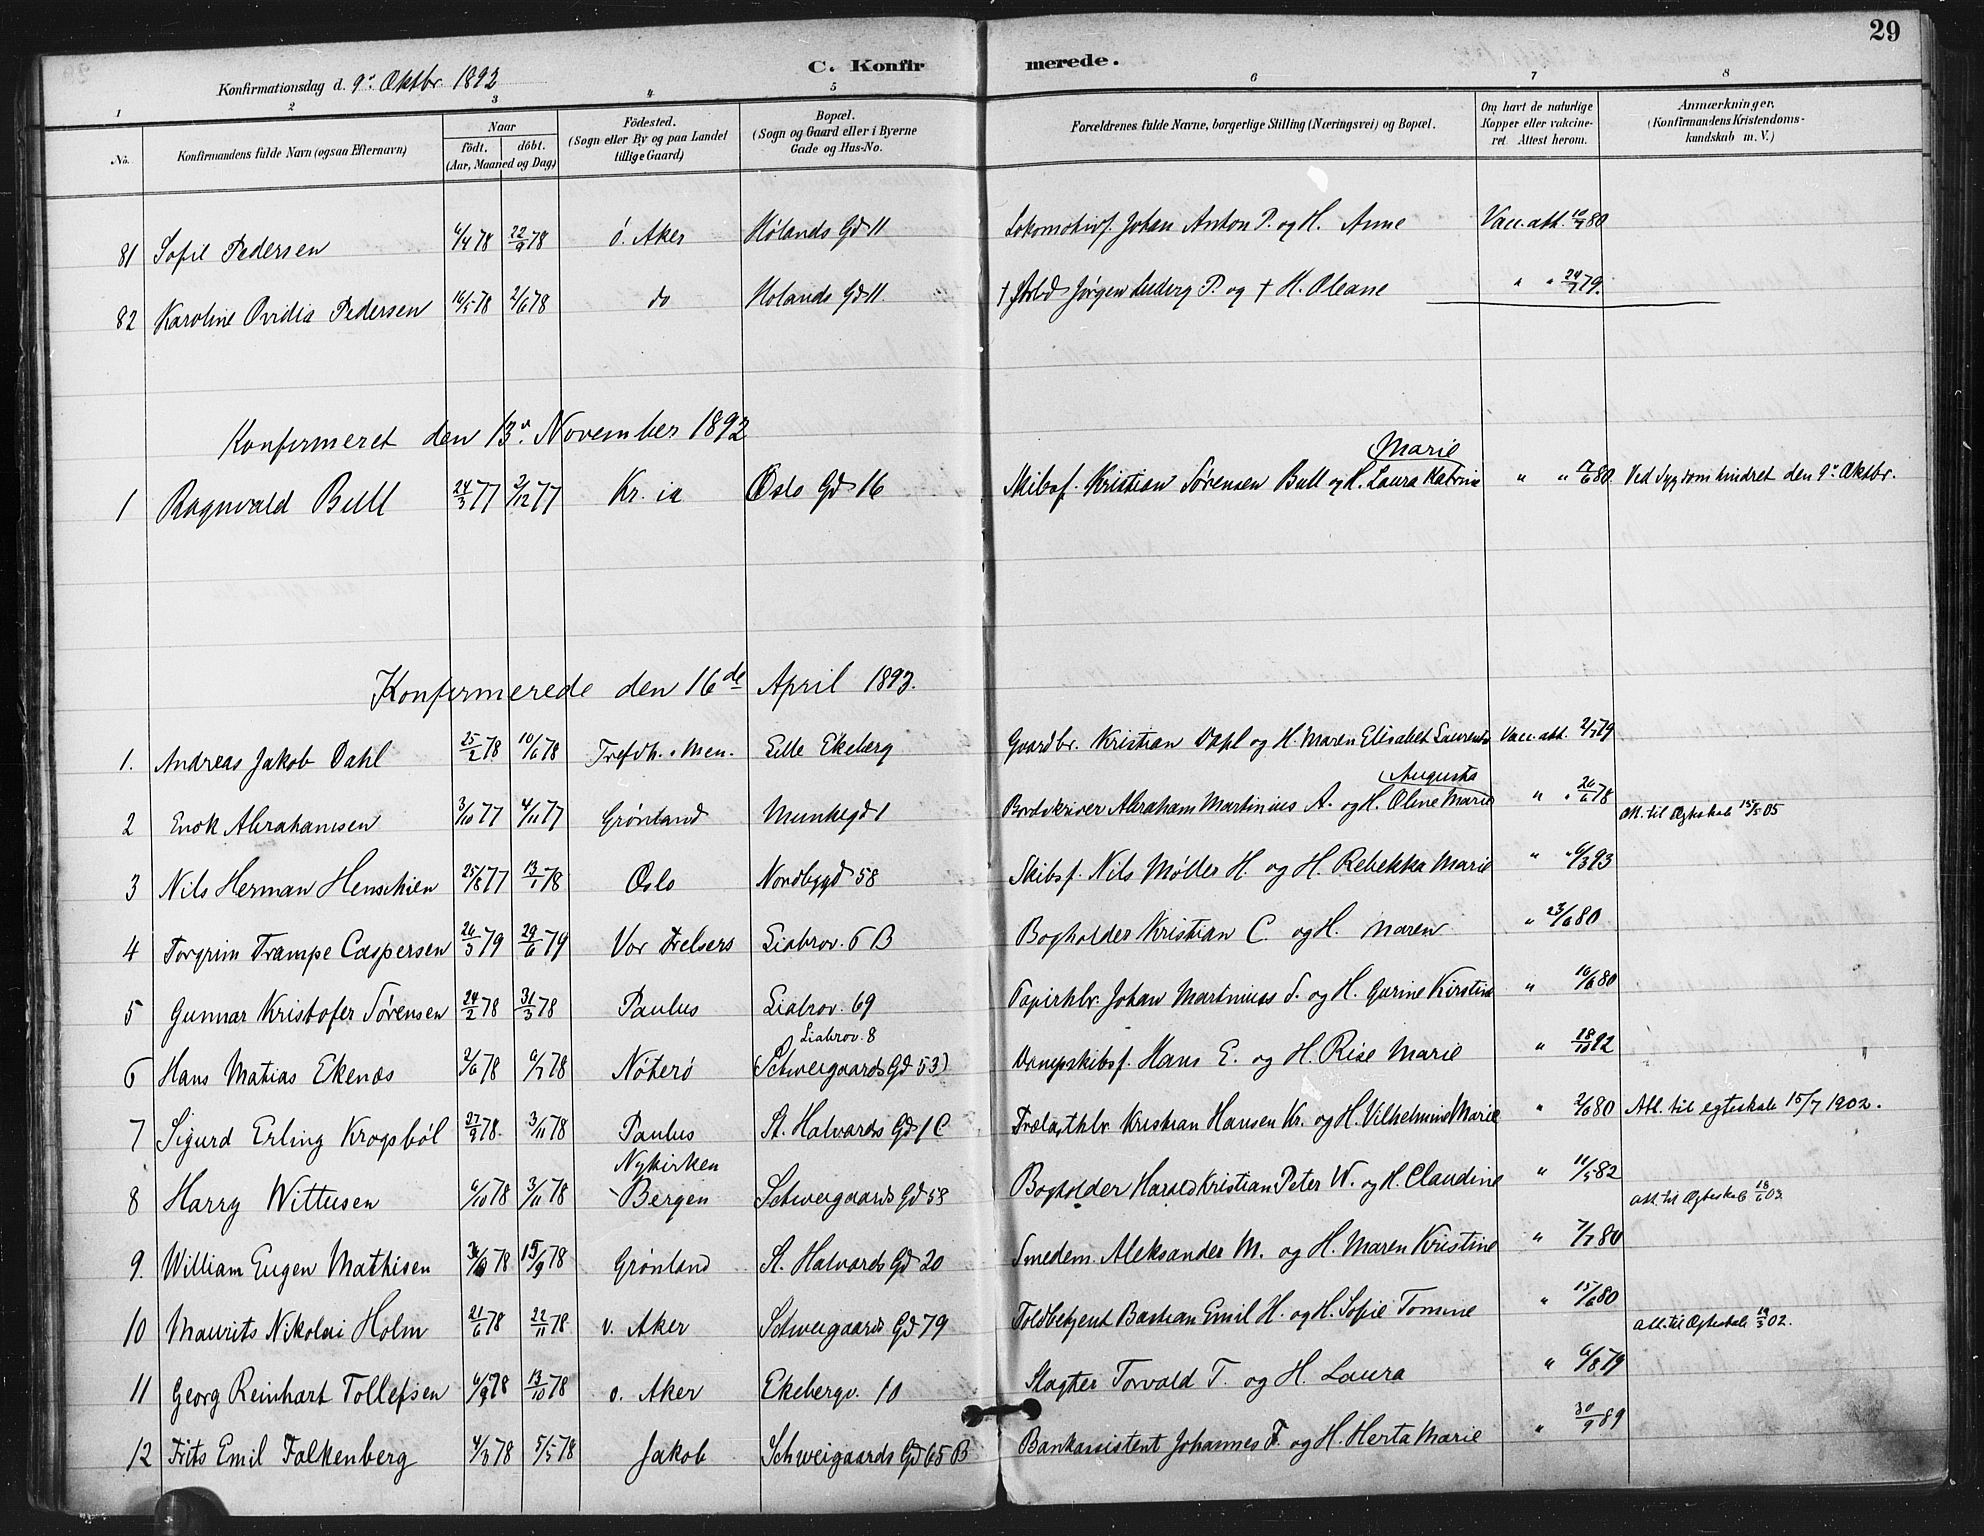 29
C. Konfirmerede.
Konfirmationsdag d. 9de Oktbr. 1892
1 2 3 4 5 6 7 8
No. Konfirmandens fulde Navn (ogsaa Efternavn) Naar födt. döbt. (Aar, Maaned og Dag) Födested. (Sogn eller By og paa Landet tillige Gaard) Bopæl. (Sogn og Gaard eller i Byerne Gade og Hus-No. Forældrenes fulde Navne, borgerlige Stilling (Næringsvei) og Bopæl. Om havt de naturlige Kopper eller vakcineret. Attest herom. Anmærkninger. (Konfirmandens Kristendomskundskab m. V.)
81 Sofie Pedersen 6/4 78 22/9 78 ö. Aker Hölands Gd 11 Lokomotivf. Johan Anton P. og H. Anne Vacc. att. 80
82 Karoline Ovidia Pedersen 16/5 78 2/6 78 do Holands Gd 11. † Jørgen Ludvig P. og † H. Oleane " " 79.
Konfirmeret den 13de November 1892
1 Ragnvald Bull 24/3 77 2/12 77 Kr. ia Oslo Gd 16 Skibsf. Kristian Sørensen Bull og H. Laura Katrine Marie " " 80 Ved Sygdom hindret den 9de Oktbr.
Konfirmerede den 16de April 1893.
1. Andreas Jakob Dahl 25/2 78 10/6 78 Trefdh. Men. Lille Ekeberg Gaardbr. Kristian Dahl og H. Maren Elisabet Vacc. att. 79
2 Enok Abrahamsen 3/10 77 4/11 77 Grønland Munkegd 1 Abraham Martinius A. og H. Oline Marie Augusta " " 26/6 78 Att. til Ægteskab 05
3 Nils Herman Henschien 25/8 77 13/1 78 Oslo Nordbygd 58 Skibsf. Nils Møller H. og H. Rebekka Marie " " 6/3 93
4 Torgrim Trampe Caspersen 26/3 79 29/6 79 Vor Frelsers Liabrov. 6 B Bogholder Kristian C. og H. Maren " 23/6 80
5 Gunnar Kristofer Sørensen 24/2 78 31/3 78 Paulus Liabrov. 69 Papirhlr. Johan Martinius S. og H. Gurine Kirstine " 10/6 80
6 Hans Matias Ekenæs 2/6 78 6/7 78 Nöterö Liabrov. 8 (Schweigaards Gd 53) Dampskibsf. Hans E. og H. Rise Marie " 18/10 92
7 Sigurd Erling Krogsböl 27/9 78. 3/11 78 Paulus St. Halvards Gd 1 C Trælasthlr Kristian Hansen Kr. og H. Vilhelmine Marie " 2/6 80 Att. til egteskab 15/7 1902.
8 Harry Wittusen 6/10 78 3/11 78 Nykirken Bergen Schweigaards Gd 58 Bogholder Harald Kristian Peter W. og H. Claudine " 11/5 82 Att. til Ægteskab 18/6 03.
9. William Eugen Mathisen 78 15/9 78 Grønland St. Halvards Gd 20 Smedem. Aleksander M. og H. Maren Kristine " 7/7 80
10 Maurits Nikolai Holm 21/6 78 22/11 78 v. Aker Schweigaards Gd 79 Toldbetjent Bastian Emil H. og H. Sofie Tomine " 15/6 80 att. til Ægteskab 02.
11 Georg Reinhart Tollefsen 6/9 78 13/10 78 ø. Aker Ekebergv. 10 Slagter Torvald T. og H. Laura " 6/8 79
12 Frits Emil Falkenberg 4/3 78 5/5 78 Jakob Schweigaards Gd 65 B Bankassistent Johannes F. og H. Herta Marie " 30/9 89